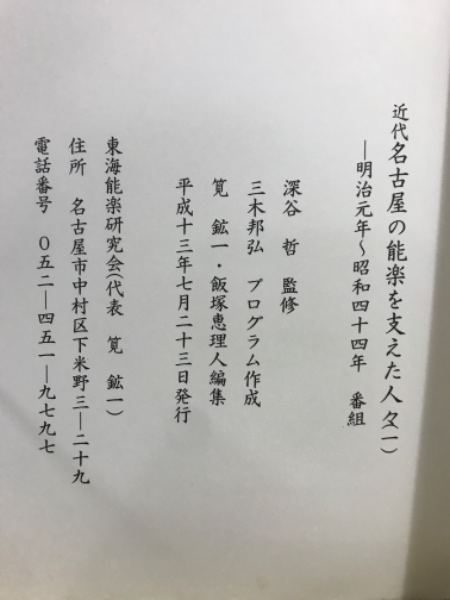 近代名古屋の能楽を支えた人々(一)
―明治元年～昭和四十四年　番組
深谷　哲　監修
三木邦弘　プログラム作成
筧　鉱一・飯塚恵理人編集
平成十三年七月二十三日発行
東海能楽研究会(代表　筧　鉱一)
住所　名古屋市中村区下米野三―二十九
電話番号　〇五二―四五一―九七九七